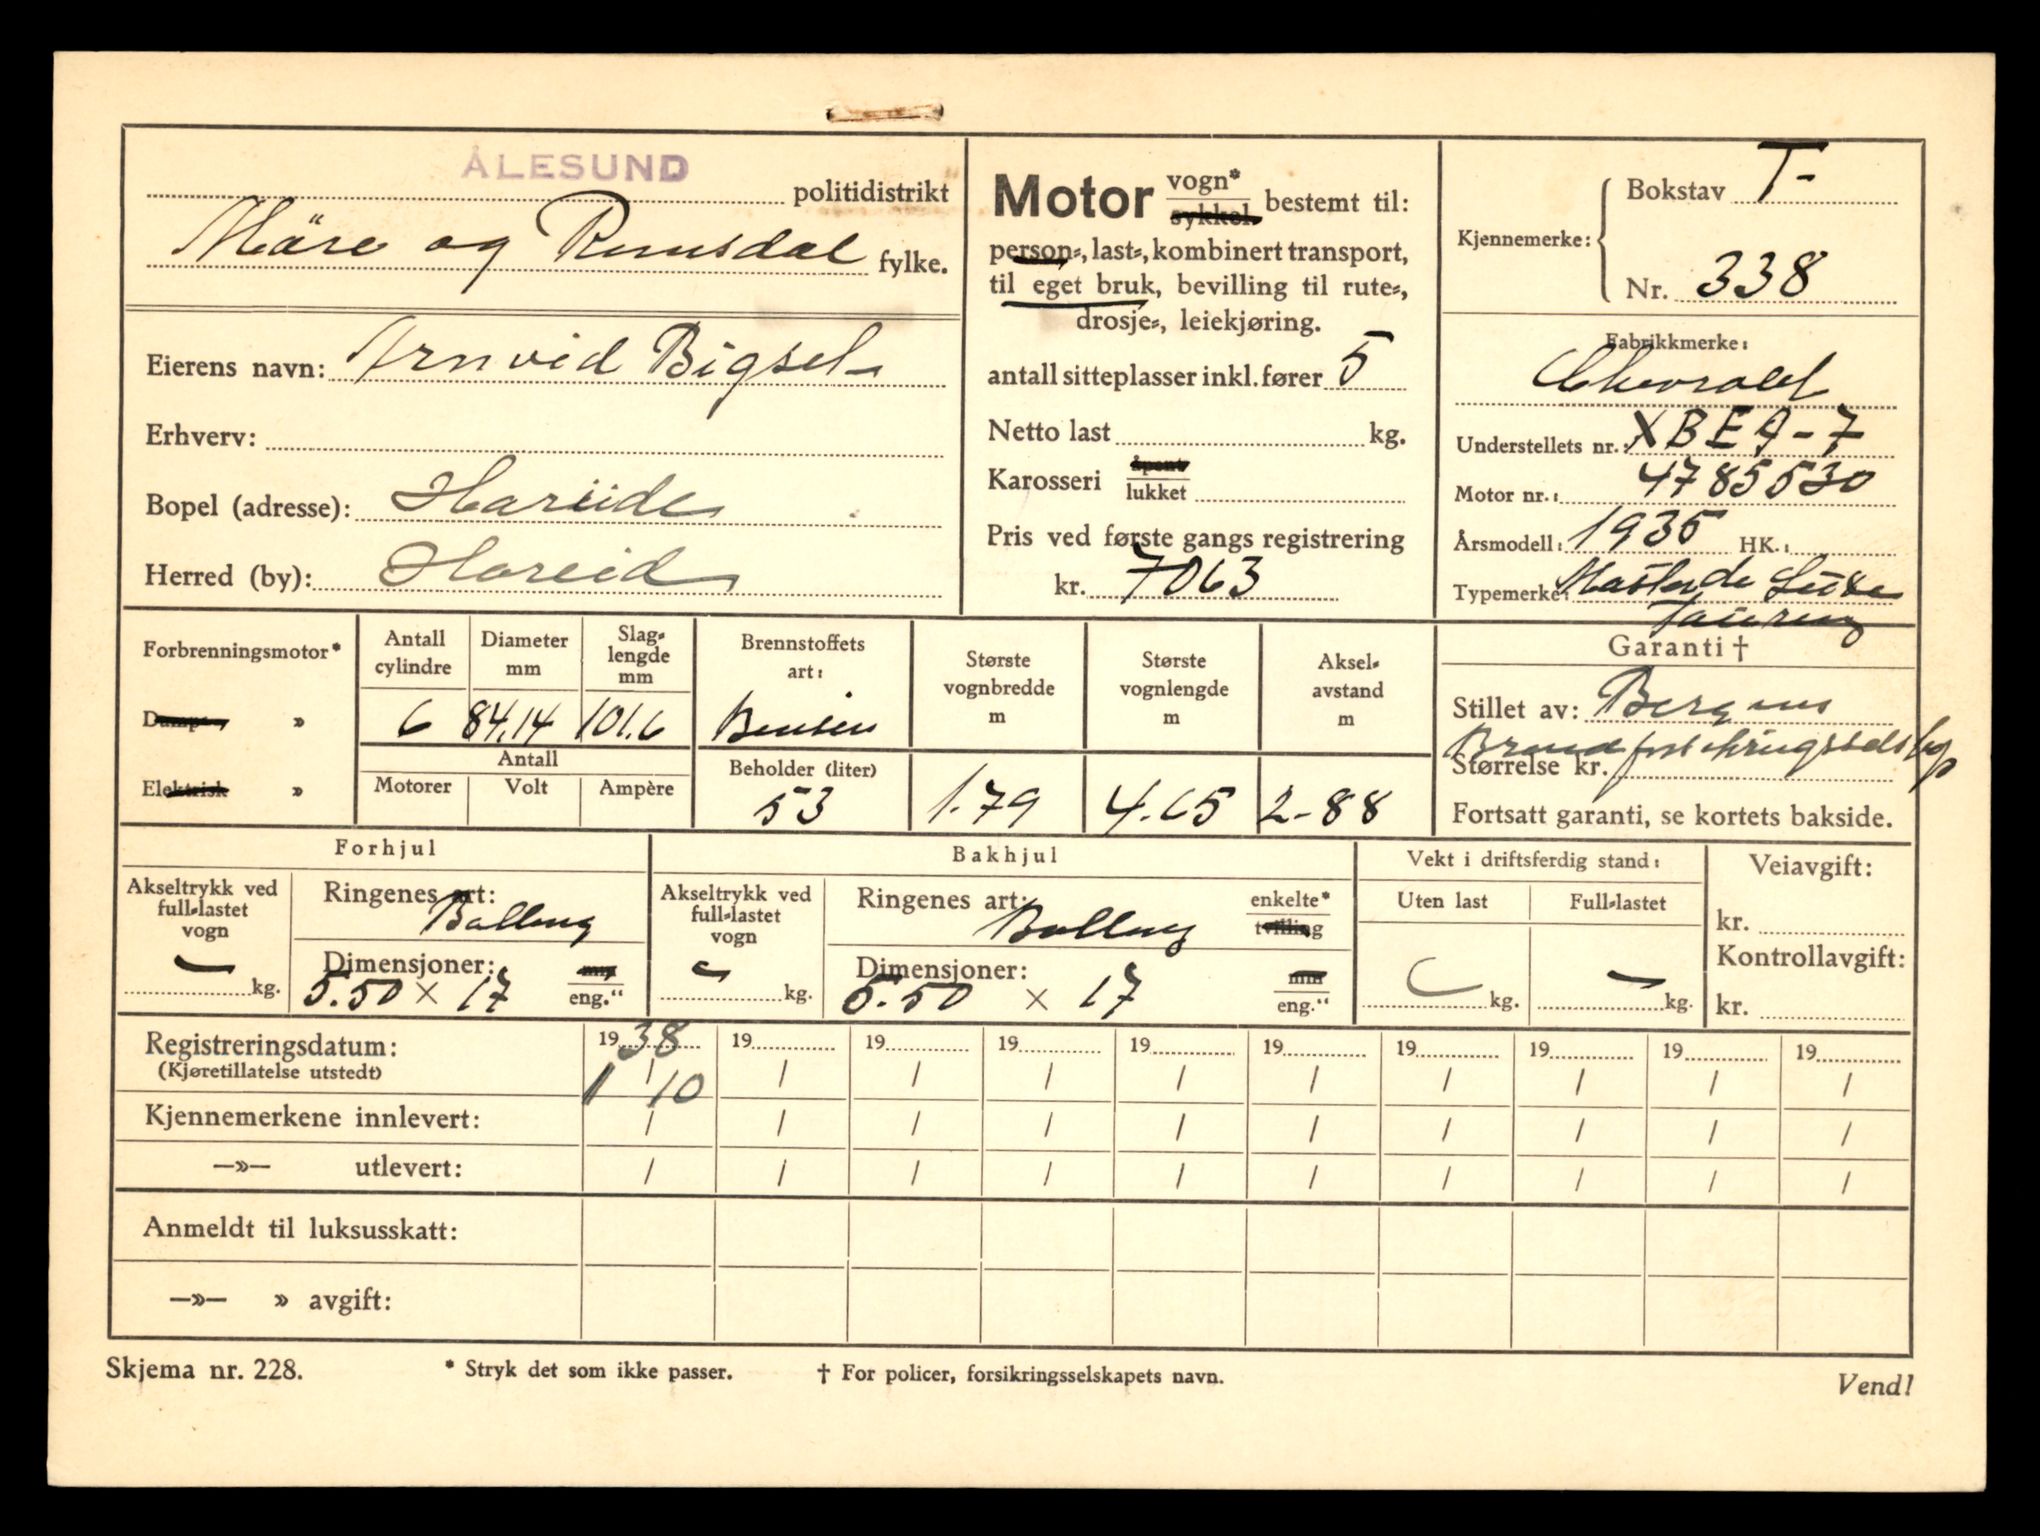 ÅLESUND
politidistrikt
Möre og Romsdal fylke.
Eierens navn: Arnvid Bigset
Erhverv:
Bopel (adresse): Hareide
Herred (by): Hareid
Motor vogn* sykkel bestemt til:
person-, last-, kombinert transport,
til eget bruk, bevilling til rute-,
drosje-, leiekjøring.
antall sitteplasser inkl. fører 5
Netto last kg.
Karosseri åpent lukket
Pris ved første gangs registrering
kr. 7063
Kjennemerke: Bokstav T-
Nr. 338
Fabrikkmerke:
Chevrolet
Understellets nr.: XBE9-7
Motor nr.: 4785530
Årsmodell: 1935 HK.:
Typemerke: Master de Luxe
Touring
Forbrenningsmotor*
Damp- »
Elektrisk »
Antall cylindre 6
Diameter mm 84,14
Slag-lengde mm 101.6
Antall
Motorer Volt Ampère
Brennstoffets art: Bensin
Beholder (liter) 53
Største vognbredde m 1.79
Største vognlengde m 4.65
Aksel-avstand m 2-88
Garanti †
Stillet av: Bergens
Brandforsikringsselskap
Størrelse kr.
Fortsatt garanti, se kortets bakside.
Forhjul
Akseltrykk ved full-lastet vogn — kg.
Ringenes art: Ballong
Dimensjoner: 5.50 × 17 mm eng."
Bakhjul
Akseltrykk ved full-lastet vogn — kg.
Ringenes art: Ballong enkelte* tvilling
Dimensjoner: 5.50 × 17 mm eng."
Vekt i driftsferdig stand:
Uten last kg.
Full-lastet — kg.
Veiavgift:
kr.
Kontrollavgift:
kr.
Registreringsdatum: 1938 19 19 19 19 19 19 19 19 19
(Kjøretillatelse utstedt) 1/10 / / / / / / / / /
Kjennemerkene innlevert: / / / / / / / / / /
—»— utlevert: / / / / / / / / / /
Anmeldt til luksusskatt:
—»— » avgift:
Skjema nr. 228. * Stryk det som ikke passer. † For policer, forsikringsselskapets navn. Vend!